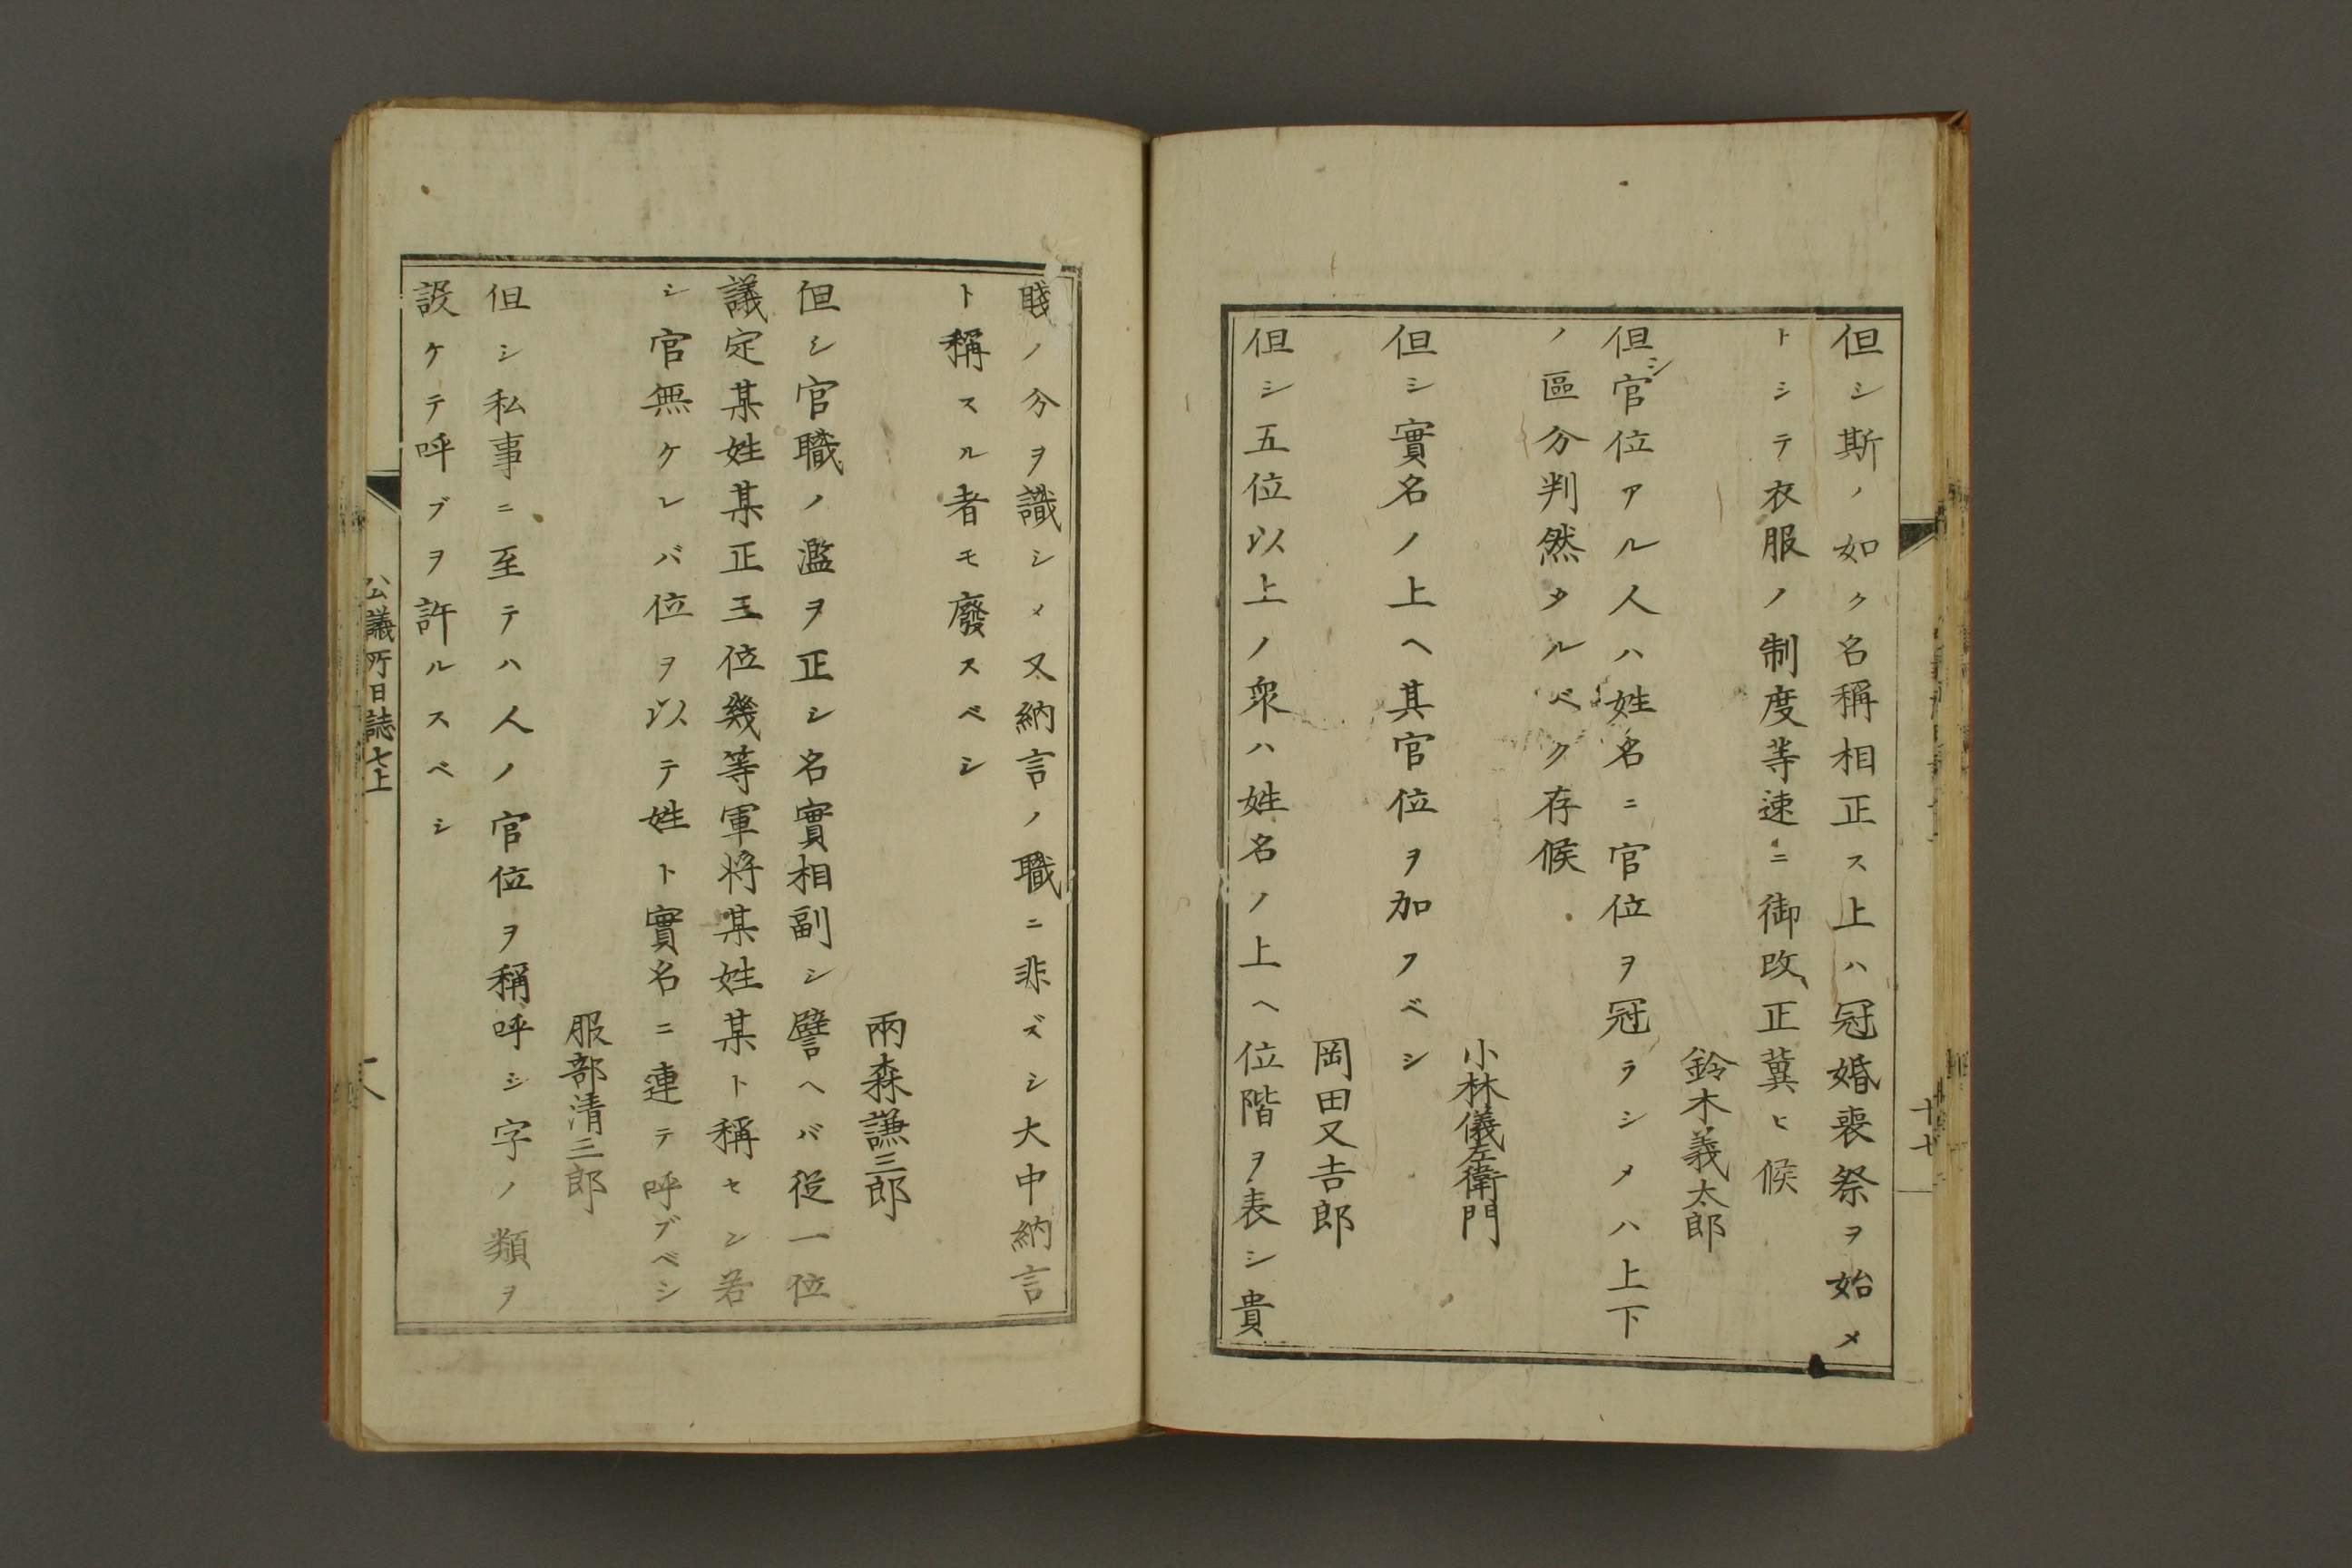 但シ斯ノ如ク名稱相正ス上ハ冠婚喪祭ヲ始メ
トシテ衣服ノ制度等速ニ御改正冀ヒ候
鈴木義太郎
但シ官位アル人ハ姓名ニ官位ヲ冠ラシメハ上下
ノ區分判然タルベク存候
小林儀左衛門
但シ實名ノ上ヘ其官位ヲ加フベシ
岡田又吉郎
但シ五位以上ノ衆ハ姓名ノ上ヘ位階ヲ表シ貴
賤ノ分ヲ識シメ又納言ノ職ニ非ズシ大中納言
ト稱スル者モ廢スベシ
兩森謙三郎
但シ官職ノ濫ヲ正シ名實相副シ譬ヘバ從一位
議定某姓某正三位幾等軍将某姓某ト稱セン若
シ官無ケレバ位ヲ以テ姓ト實名ニ連テ呼ブベシ
服部清三郎
但シ私事ニ至テハ人ノ官位ヲ稱呼シ字ノ類ヲ
設ケテ呼ブヲ許ルスベシ
公議所日誌七上